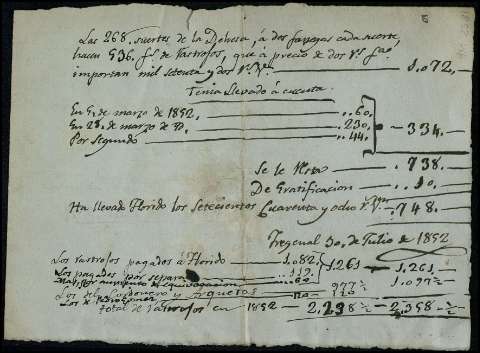 Las 268. suertes de la Dehesa, á dos fanegas cada suerte,
hacen 536. f.s de rastrojos, que á precio de dos r.s fa.
importan mil setenta y dos r.s V.n 1.072.
Tenia llevado á cuenta.
En 5, de marzo de 1852. 60.
En 28. de marzo de 230. 334.
Por Segundo 44.
Se le resta 738.
De Gratificacion 10.
Ha llevado Florido los setecientos Cuarenta y ocho r.s V.n 748.
Fregenal 30. de Julio de 1852
Los rastrojos pagados á Florido 1.082. 1.261 1.261.
Los pagados por separado
Los del y
total de rastrojos en 1852 2.238 ½ 2.358 ½